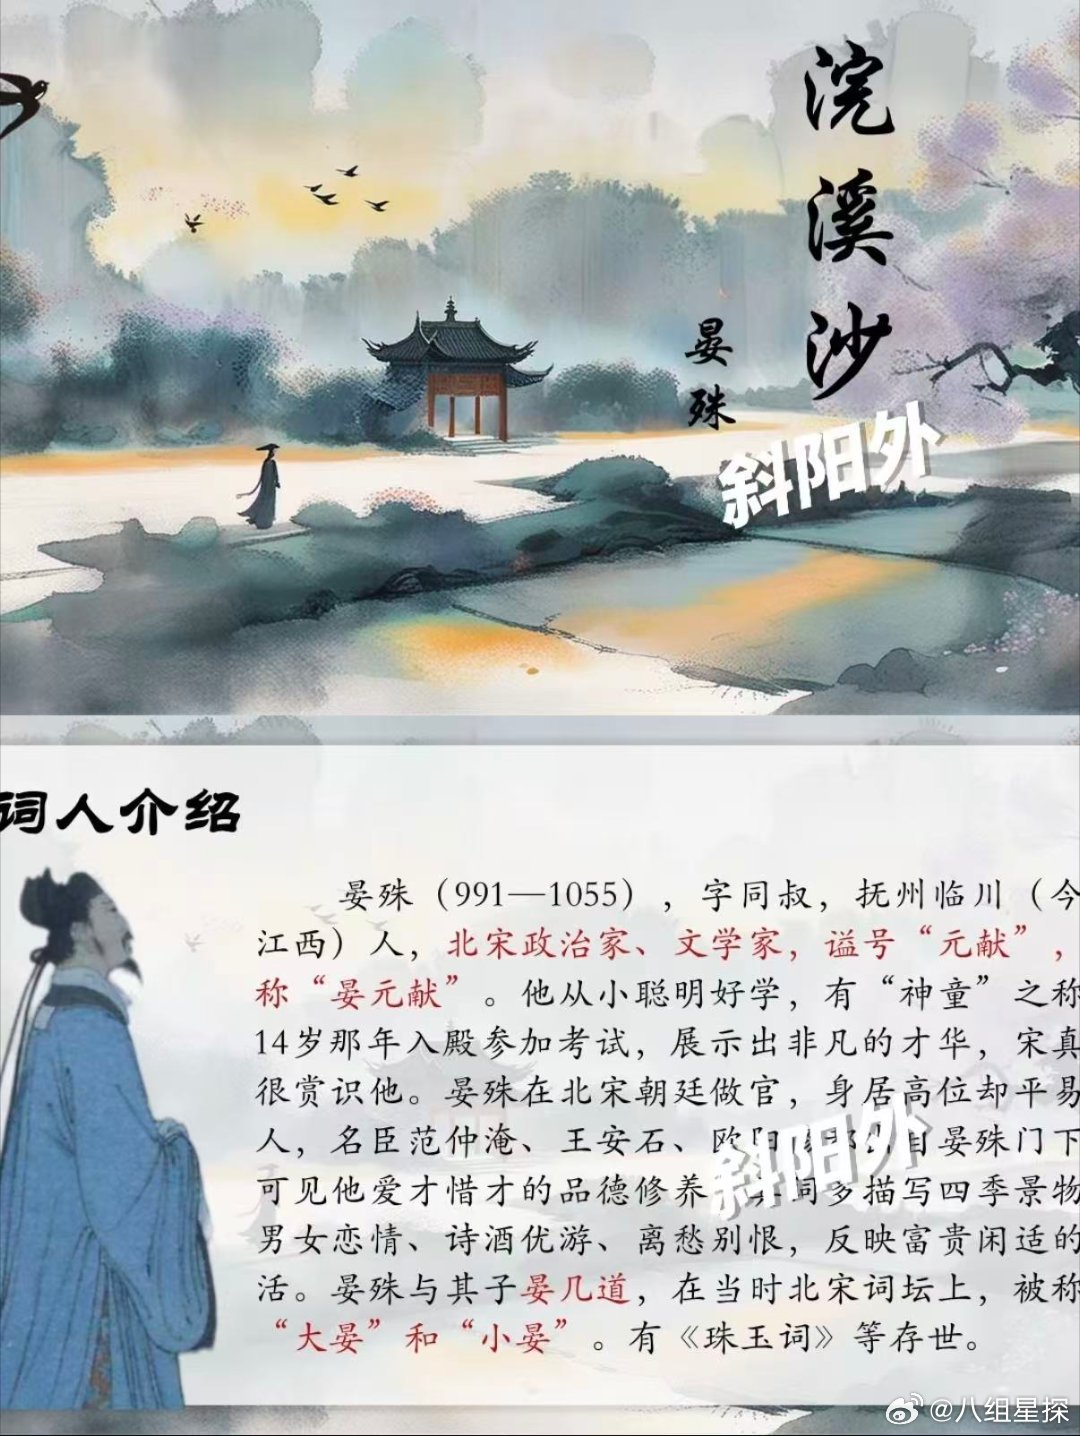 浣溪沙
晏殊
斜阳外
词人介绍
晏殊（991—1055），字同叔，抚州临川（今
江西）人，北宋政治家、文学家，谥号“元献”，
称“晏元献”。他从小聪明好学，有“神童”之称
14岁那年入殿参加考试，展示出非凡的才华，宋真
很赏识他。晏殊在北宋朝廷做官，身居高位却平易
人，名臣范仲淹、王安石、欧阳 自晏殊门下
可见他爱才惜才的品德修养 词多描写四季景物
男女恋情、诗酒优游、离愁别恨，反映富贵闲适的
活。晏殊与其子晏几道，在当时北宋词坛上，被称
“大晏”和“小晏”。有《珠玉词》等存世。
斜阳外
@八组星探